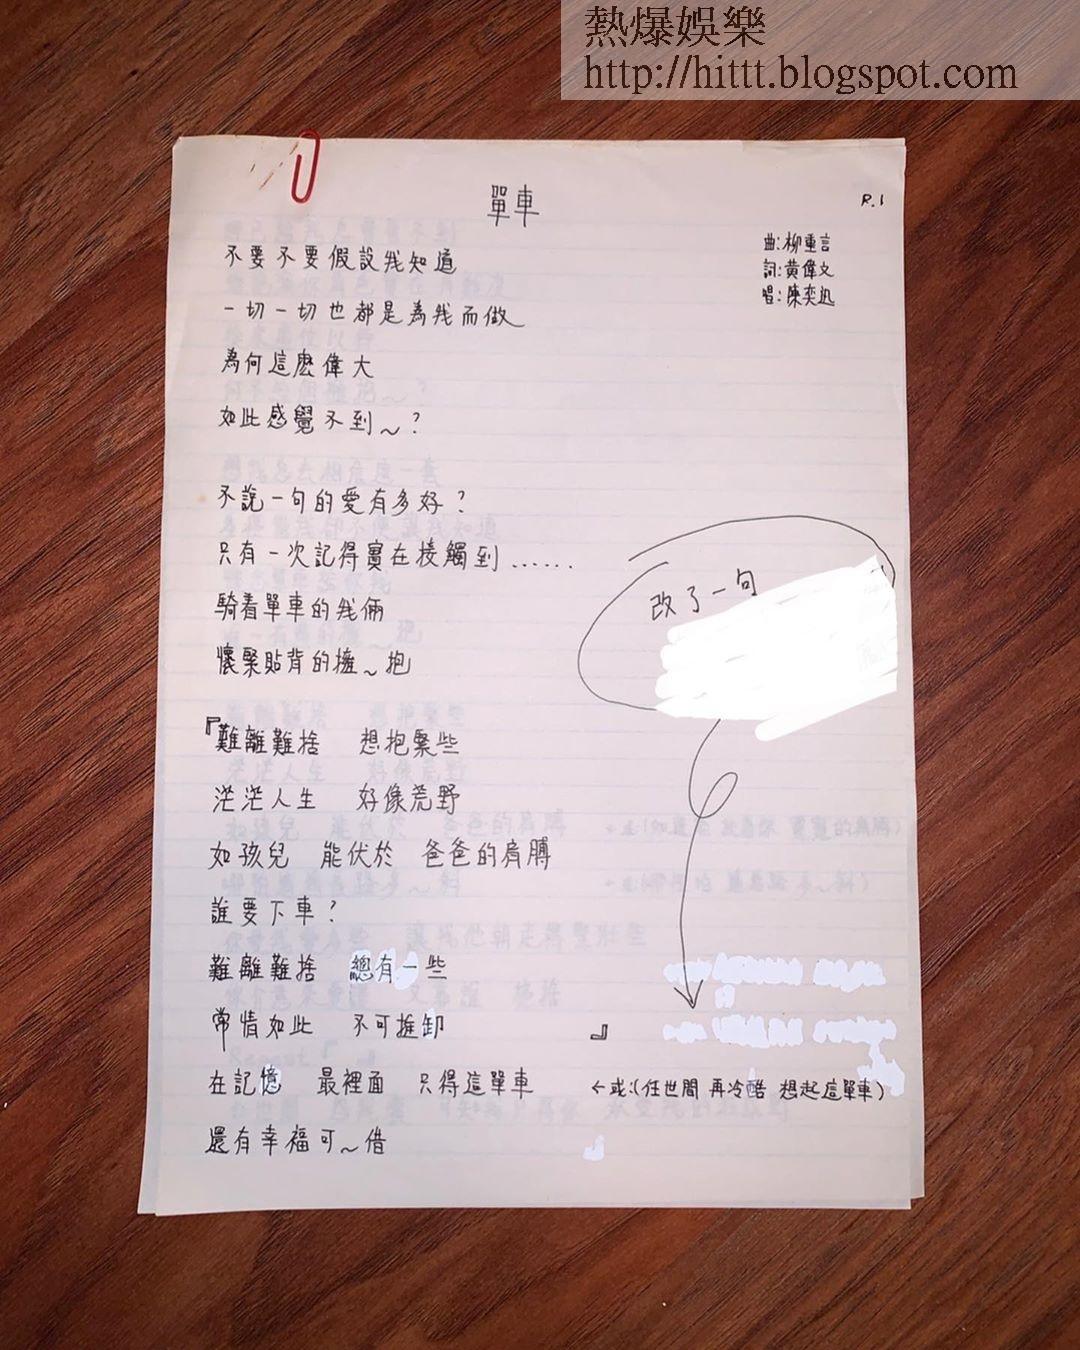 熱爆娛樂
http://hittt.blogspot.com
單車
R.1
曲:柳重言
詞:黃偉文
唱:陳奕迅
不要不要假設我知道
一切一切也都是為我而做
為何這麽偉大
如此感覺不到~?
不說一句的愛有多好?
只有一次記得實在接觸到......
騎着單車的我倆
懷緊貼背的擁~抱
改了一句
『難離難捨 想抱緊些
茫茫人生 好像荒野
如孩兒 能伏於 爸爸的肩膊
誰要下車?
難離難捨 總有一些
常情如此 不可推卸 』
在記憶 最裡面 只得這單車 ←或:(任世間 再冷酷 想起這單車)
還有幸福可~借